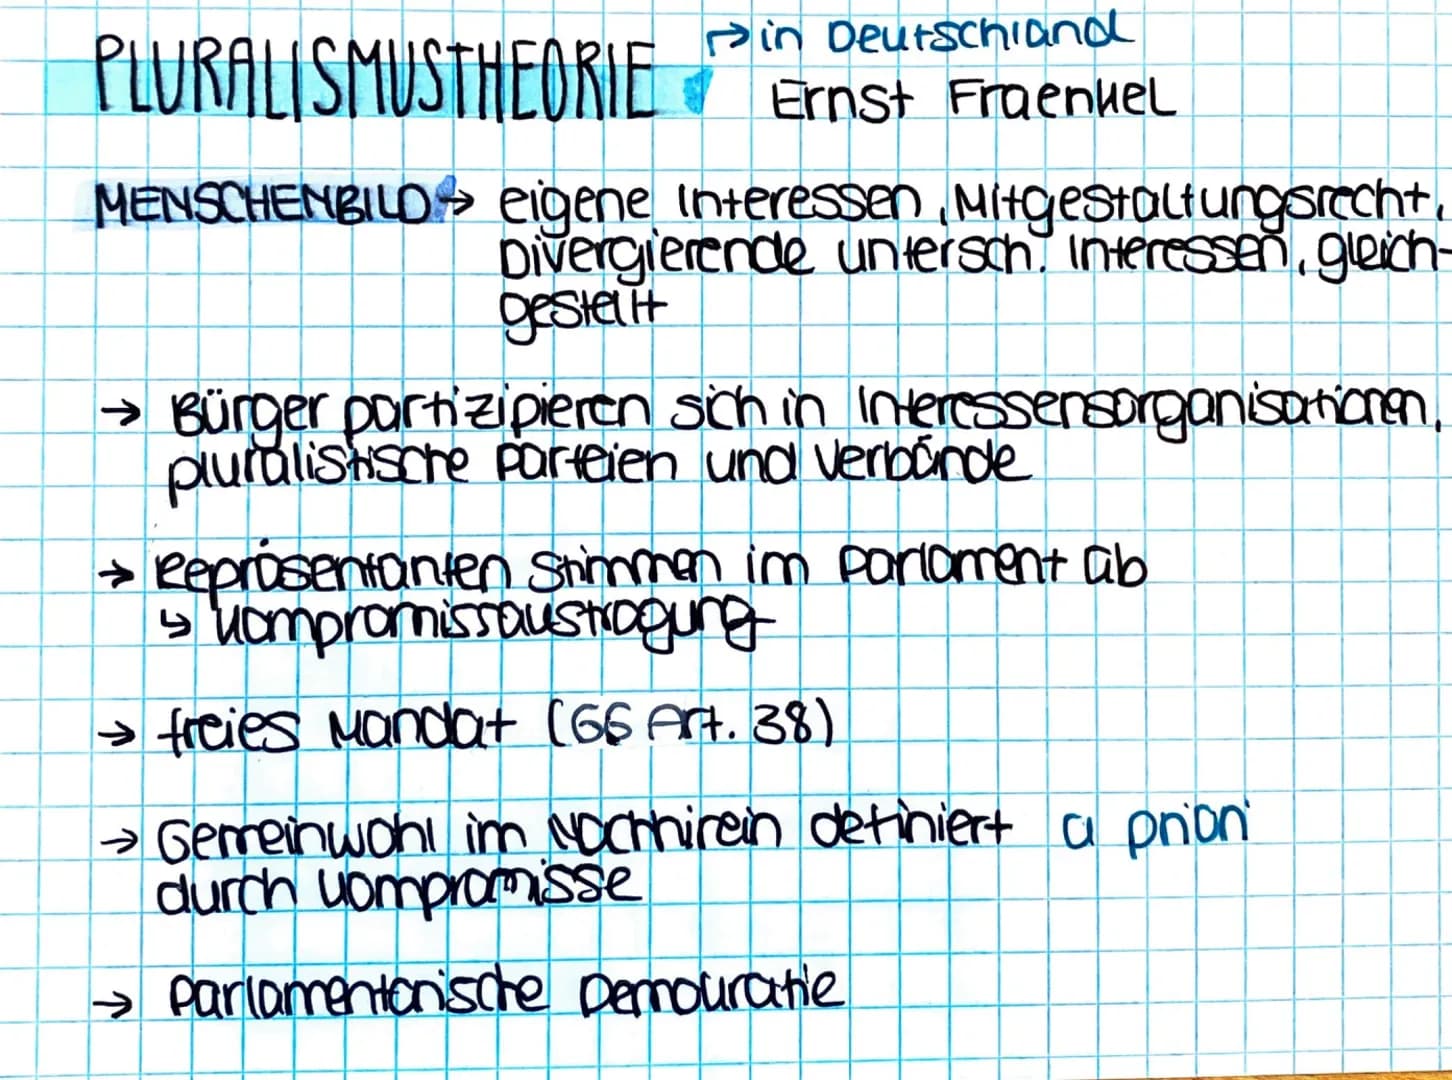 PLURALISMUSTHEORIE → in Deutschland
Ernst Fraenkel
MENSCHENBILD → eigene Interessen, Mitgestaltungsrecht,
Divergierende untersch. Interessen, gleich-
gestellt
→ Bürger partizipieren sich in Interessensorganisationen,
pluralistische Parteien und Verbände
→ Repräsentanten stimmen im Parlament ab
↳ Kompromissaustragung
→ freies Mandat (GG Art. 38)
→ Gemeinwohl im Nachhirein definiert a priori
durch Kompromisse
→ Parlamentarische Demokratie